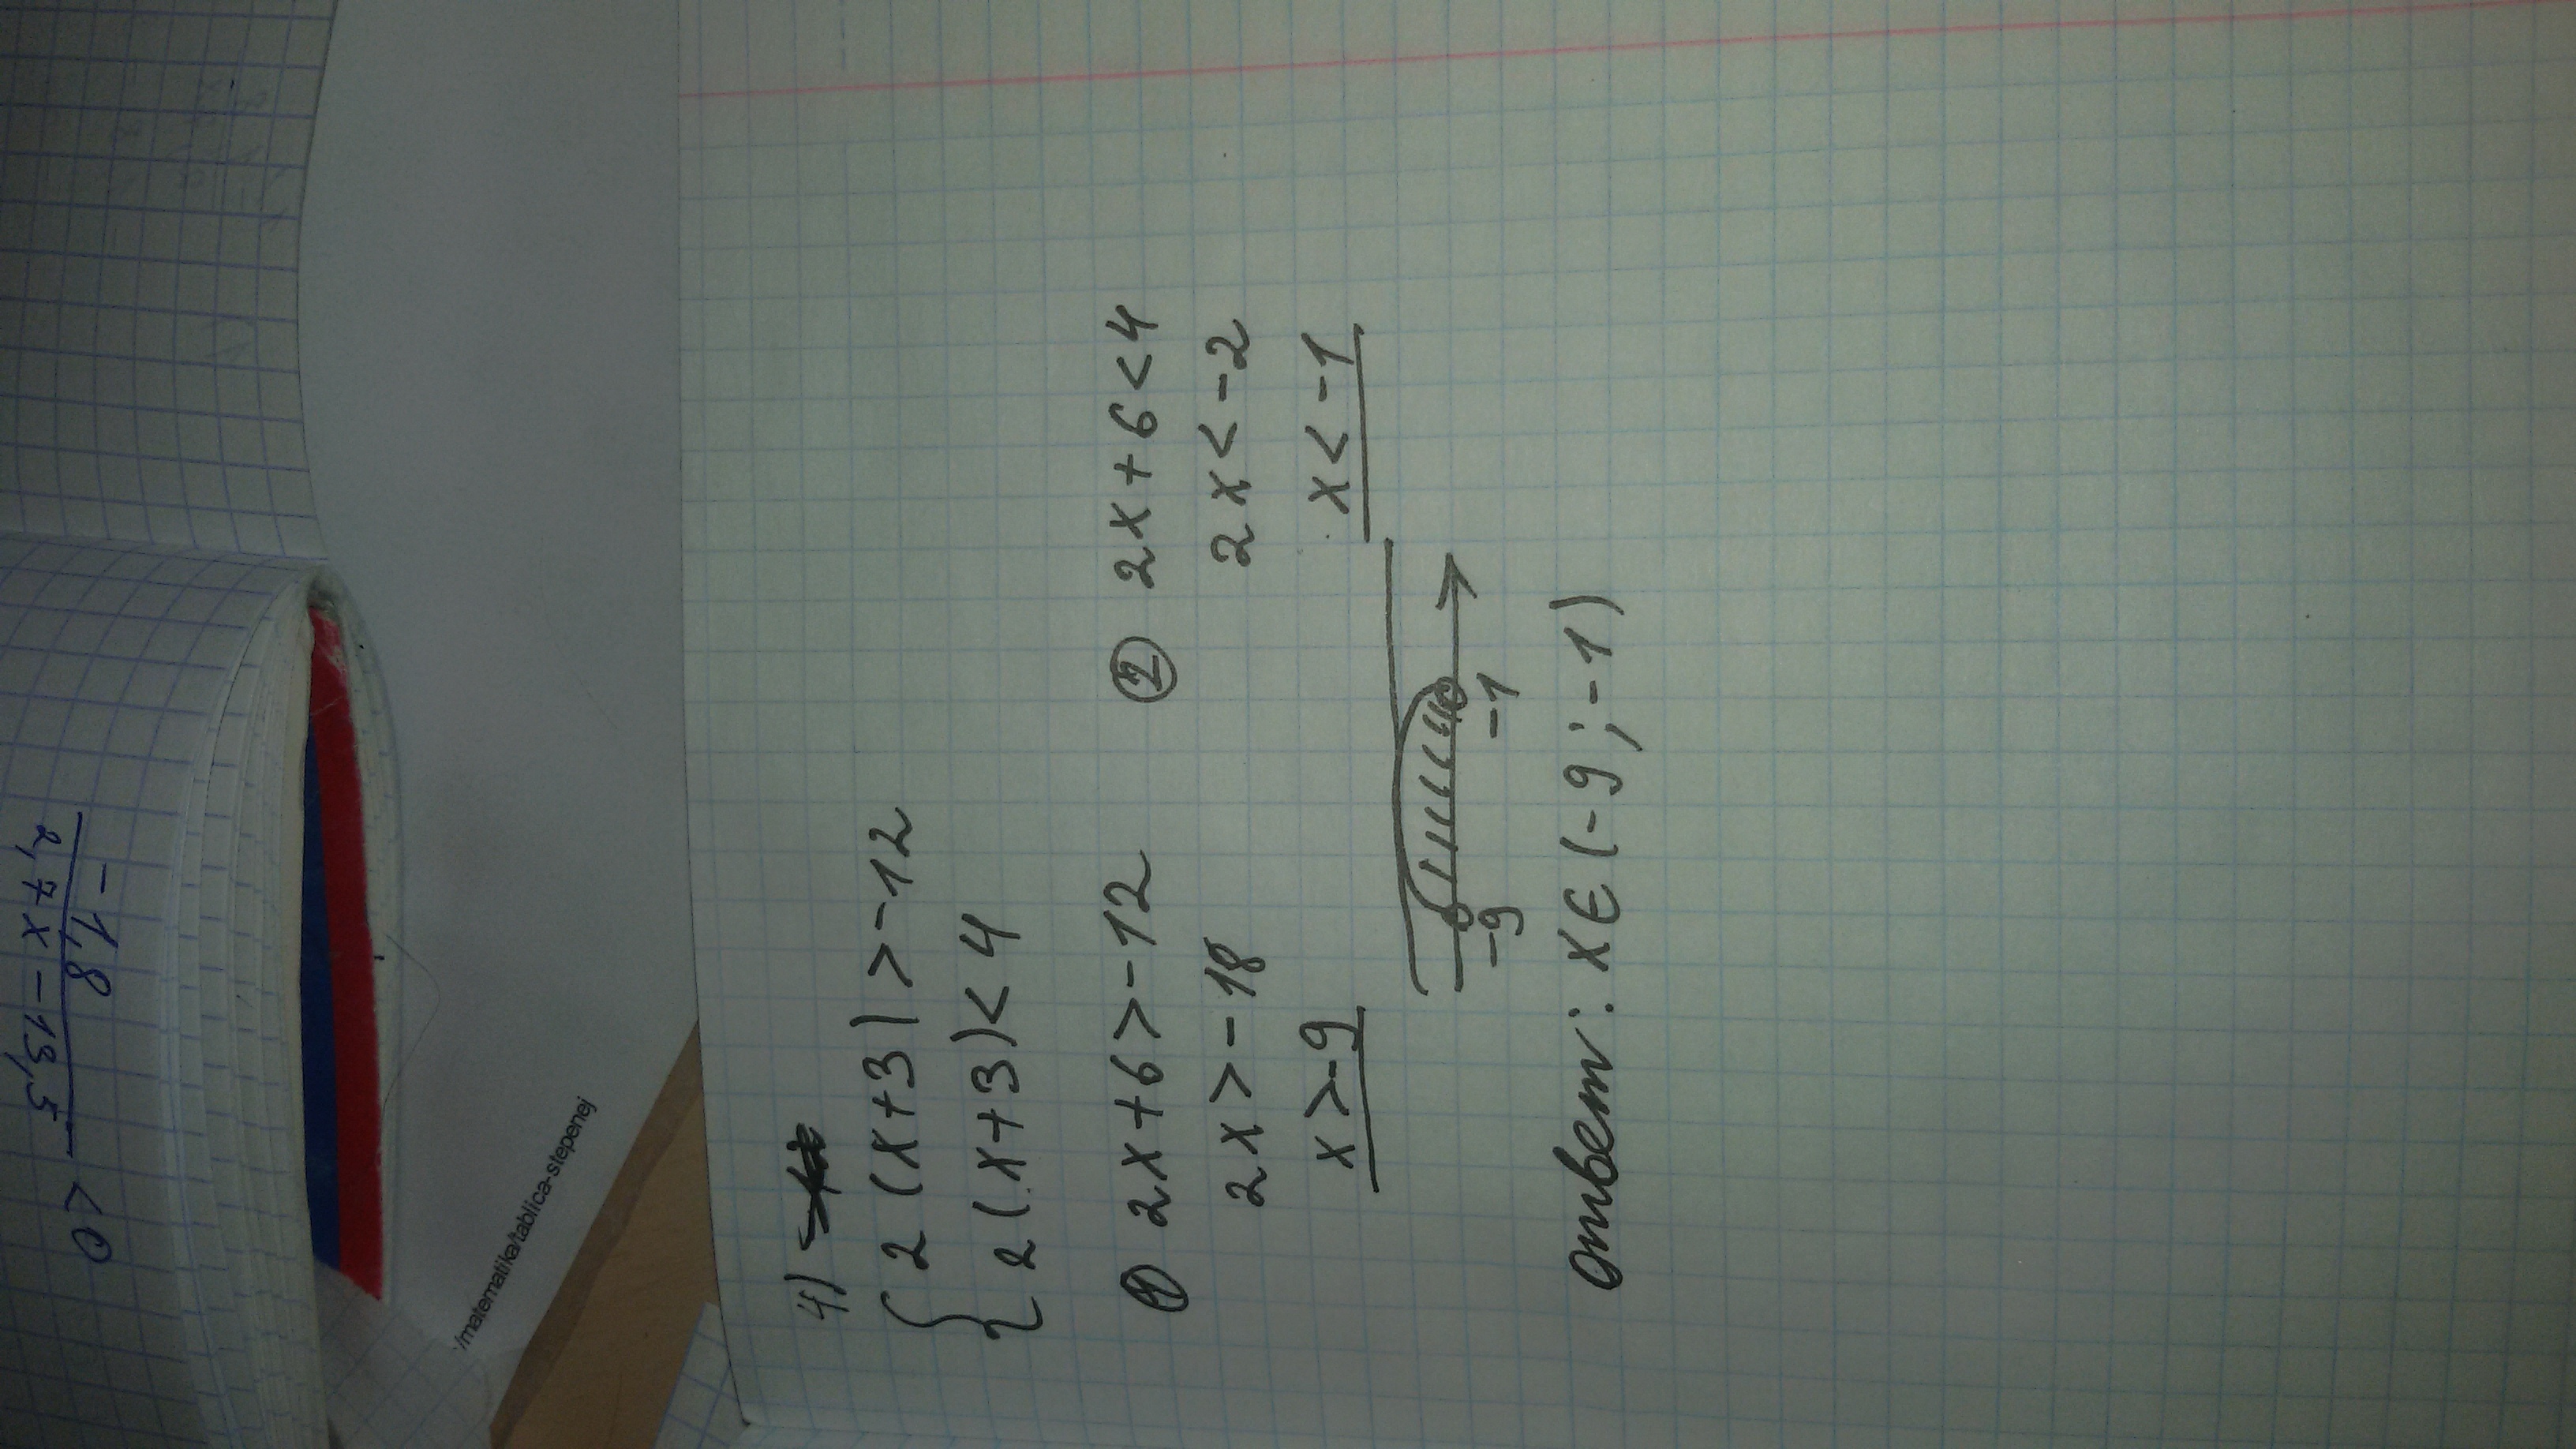 4)
{ 2(x+3) > -12
2(x+3) < 4
① 2x+6 > -12 ② 2x+6 < 4
2x > -18 2x < -2
x > -9 x < -1
-9 -1
Ответ: x ∈ (-9; -1)
-1,8
2,7x - 13,5 < 0
/matematika/tablica-stepenej